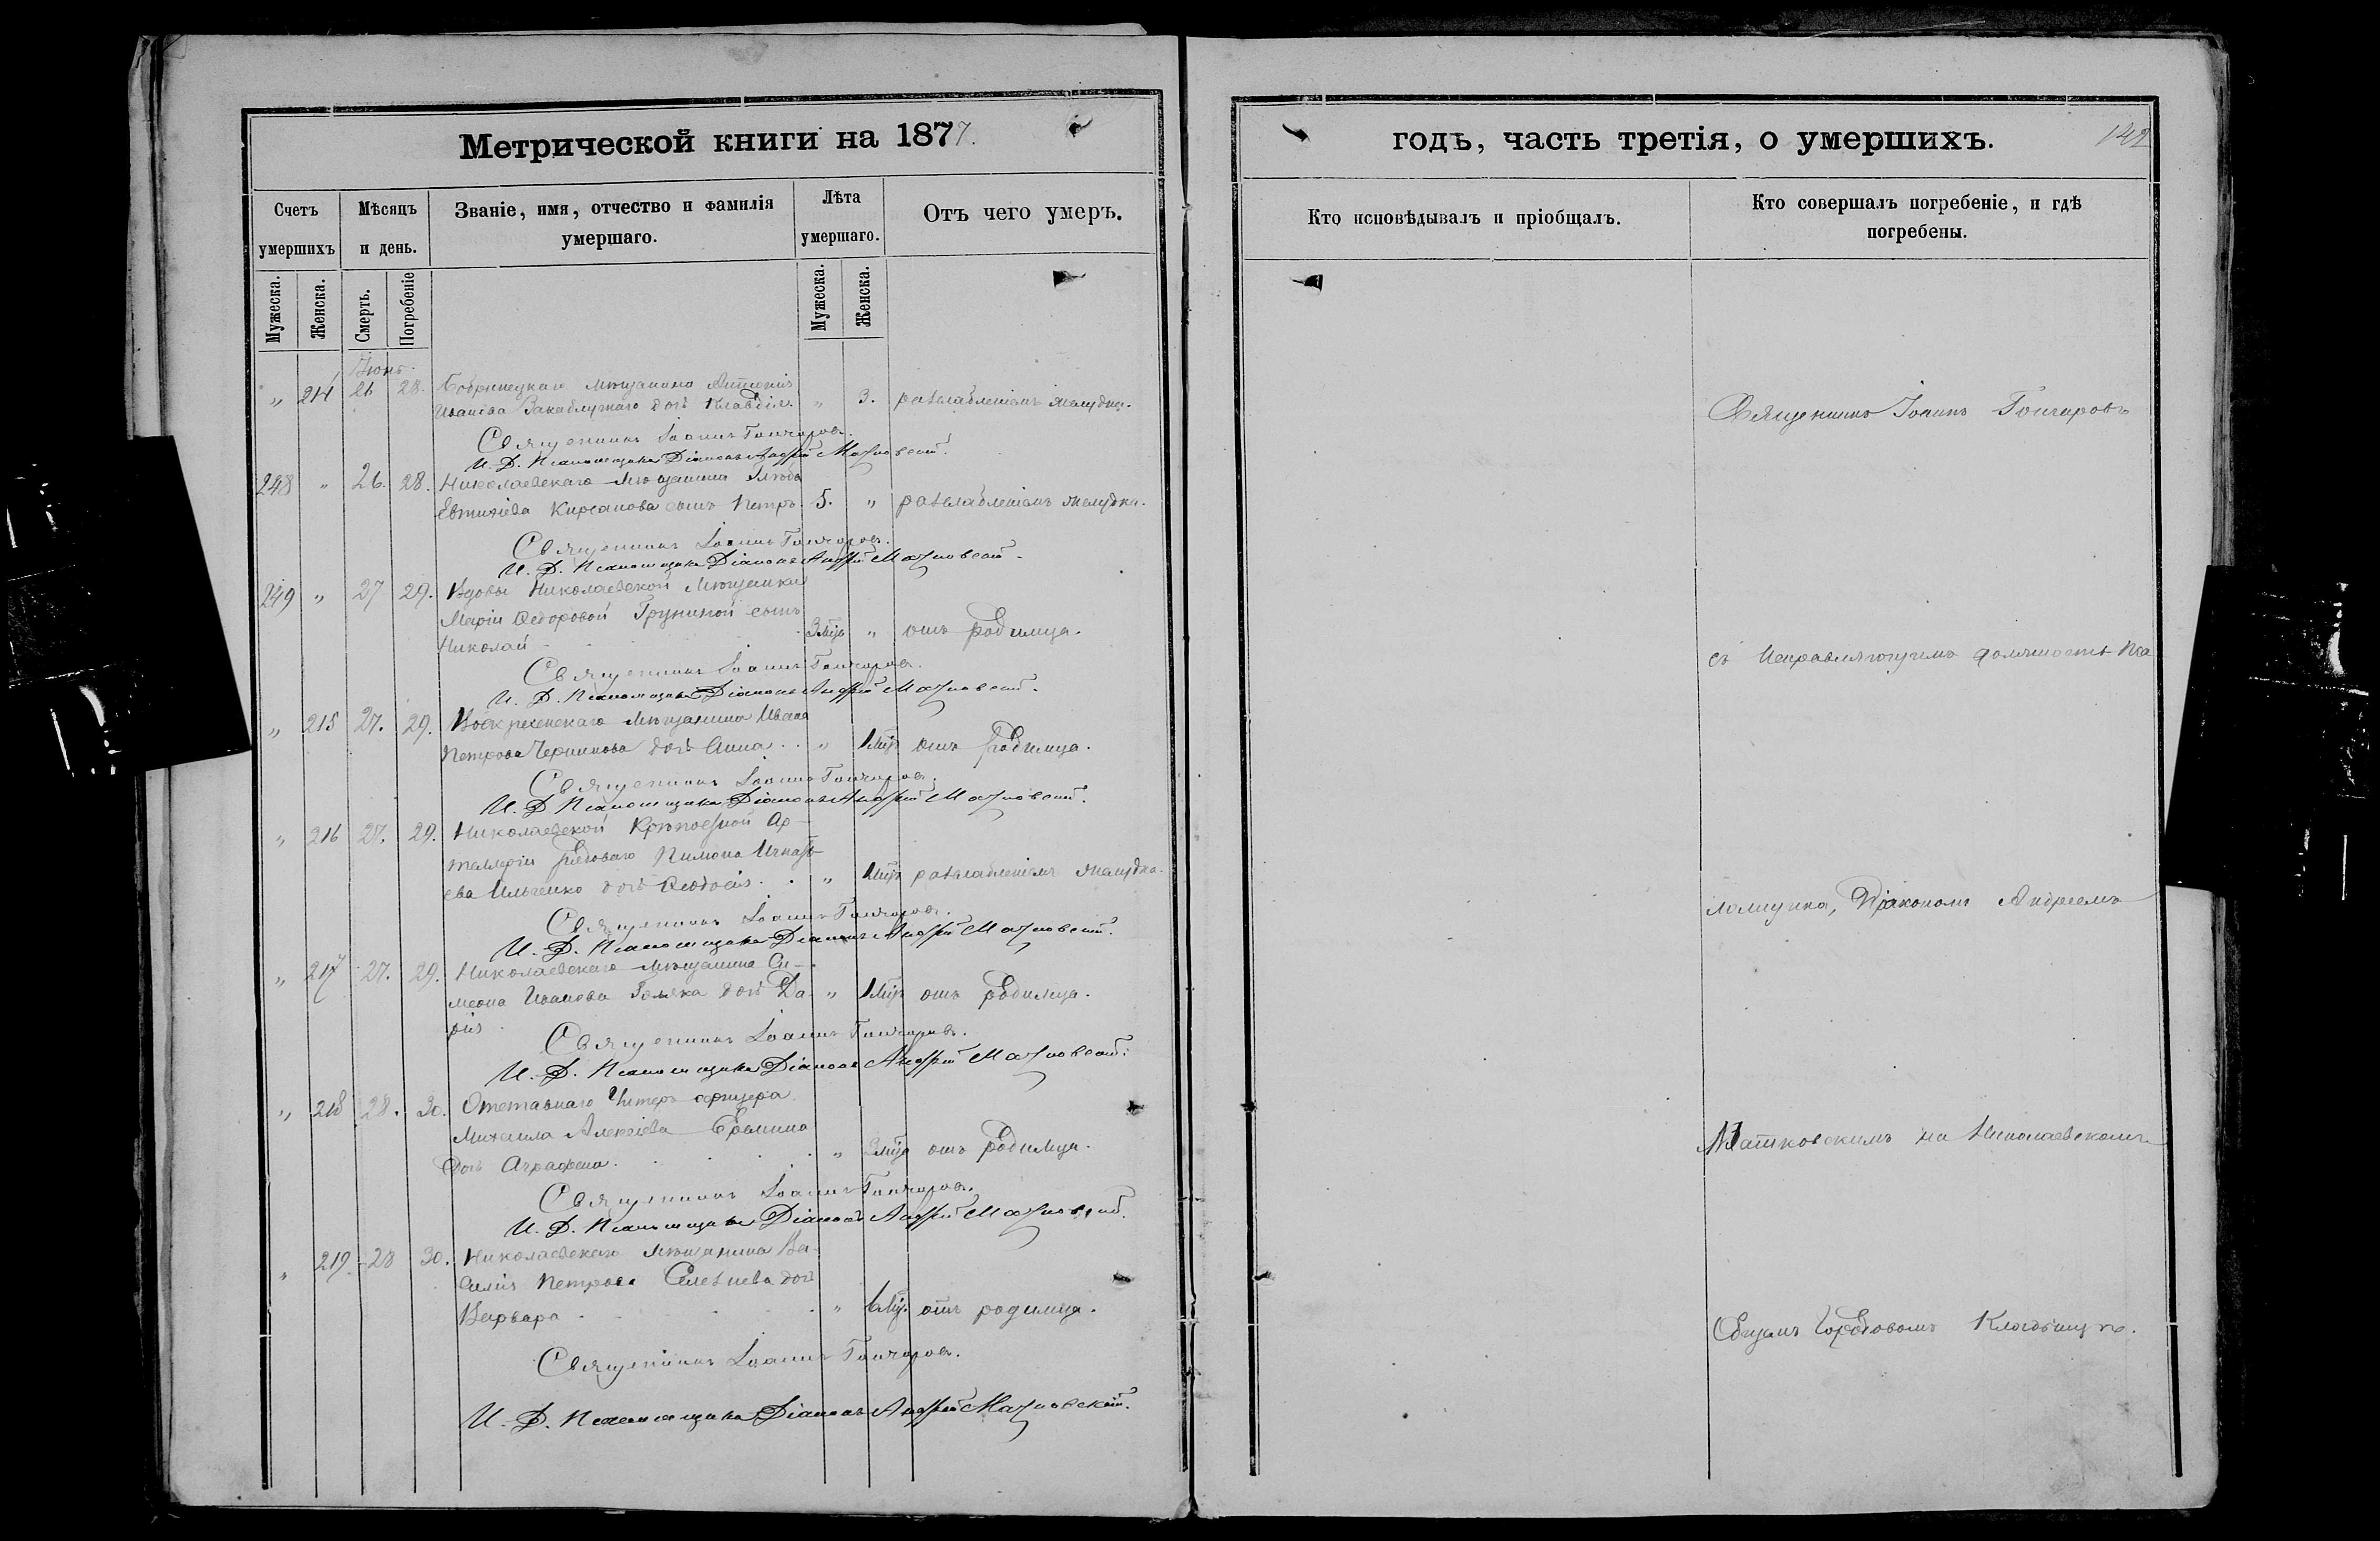 Метрической книги на 1877.
Счетъ умершихъ
Мѣсяцъ и день.
Званіе, имя, отчество и фамилія умершаго.
Лѣта умершаго.
Отъ чего умеръ.
Мужеска.
Женска.
Смерть.
Погребеніе
Мужеска.
Женска.
Іюнь.
„ 214 26 28. Бобринецкаго мѣщанина Антонія
Иванова Закаблучнаго дочь Клавдія. „ 3. разслабленіемъ желудка.
Священникъ Іоаннъ Гончаровъ.
И. Д. Псаломщика Діаконъ Андрей
248 „ 26. 28. Николаевскаго мѣщанина Глѣба
Евтихіева Кирсанова сынъ Петръ 5. „ разслабленіемъ желудка.
Священникъ Іоаннъ Гончаровъ.
И. Д. Псаломщика Діаконъ Андрей
249 „ 27 29. Вдовы Николаевской мѣщанки
Маріи Ѳедоровой Груниной сынъ
Николай 3 мѣс „ отъ родимца.
Священникъ Іоаннъ Гончаровъ.
И. Д. Псаломщика Діаконъ Андрей
„ 215 27. 29. Воскресенскаго мѣщанина Ивана
Петрова Черникова дочь Анна. „ 1 мѣс отъ родимца.
Священникъ Іоаннъ Гончаровъ.
И. Д. Псаломщика Діаконъ Андрей
„ 216 27. 29. Николаевской Крѣпостной Ар-
тиллеріи рядоваго Пимона Игнать-
ева Ильченко дочь Ѳеодосія. „ 1 мѣс разслабленіемъ желудка.
Священникъ Іоаннъ Гончаровъ.
И. Д. Псаломщика Діаконъ Андрей
„ 217 27. 29. Николаевскаго мѣщанина Си-
меона Иванова дочь Да- „ 1 мѣс отъ родимца.
рія
Священникъ Іоаннъ Гончаровъ.
И. Д. Псаломщика Діаконъ Андрей
„ 218 28. 30. Отставнаго Унтеръ офицера
Михаила Алексіева Еремина
дочь Аграфена. „ мѣс отъ родимца.
Священникъ Іоаннъ Гончаровъ.
И. Д. Псаломщика Діаконъ Андрей
„ 219 28 30. Николаевскаго мѣщанина Ва-
силія Петрова Селезнева дочь
Варвара „ 6 мѣс. отъ родимца.
Священникъ Іоаннъ Гончаровъ.
И. Д. Псаломщика Діаконъ Андрей
годъ, часть третія, о умершихъ.
142
Кто исповѣдывалъ и пріобщалъ.
Кто совершалъ погребеніе, и гдѣ погребены.
Священникъ Іоаннъ Гончаровъ
съ Исправляющимъ должность Пса
ломщика, Діакономъ Андреемъ
на Николаевскомъ
Общемъ Городовомъ Кладбищѣ.